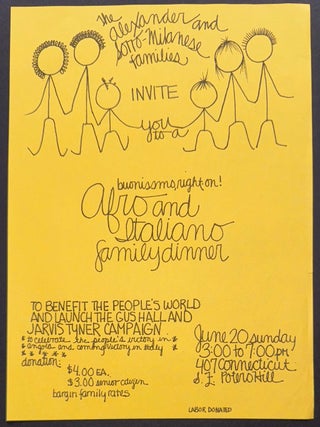 The
Alexander and
Sotto-Milanese
families
INVITE
you to a
buonissms, right on!
Afro and
Italiano
family dinner
TO BENEFIT THE PEOPLE'S WORLD
AND LAUNCH THE GUS HALL AND
JARVIS TYNER CAMPAIGN
* to celebrate the people's victory in *
* angola and coming victory in italy *
* * * * * *
donation:
$4.00 EA.
$3.00 senior citizen
bargin family rates
June 20 sunday
3:00 to 7:00 pm
407 Connecticut
S.F. Potero Hill
LABOR DONATED